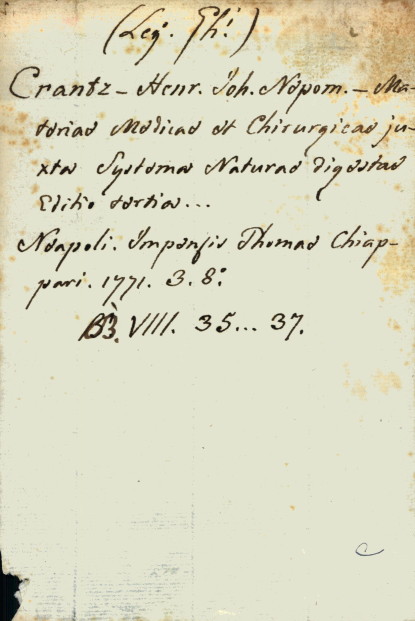 (Leg. Gh.)
Crantz – Henr. Joh. Nepom. – Ma-
teriae Medicae et Chirurgicae ju-
xta Systema Naturae digestae
Editio tertia...
Neapoli. Impensis Thomae Chiap-
pari. 1771. 3. 8.°
BB. VIII. 35... 37.
C